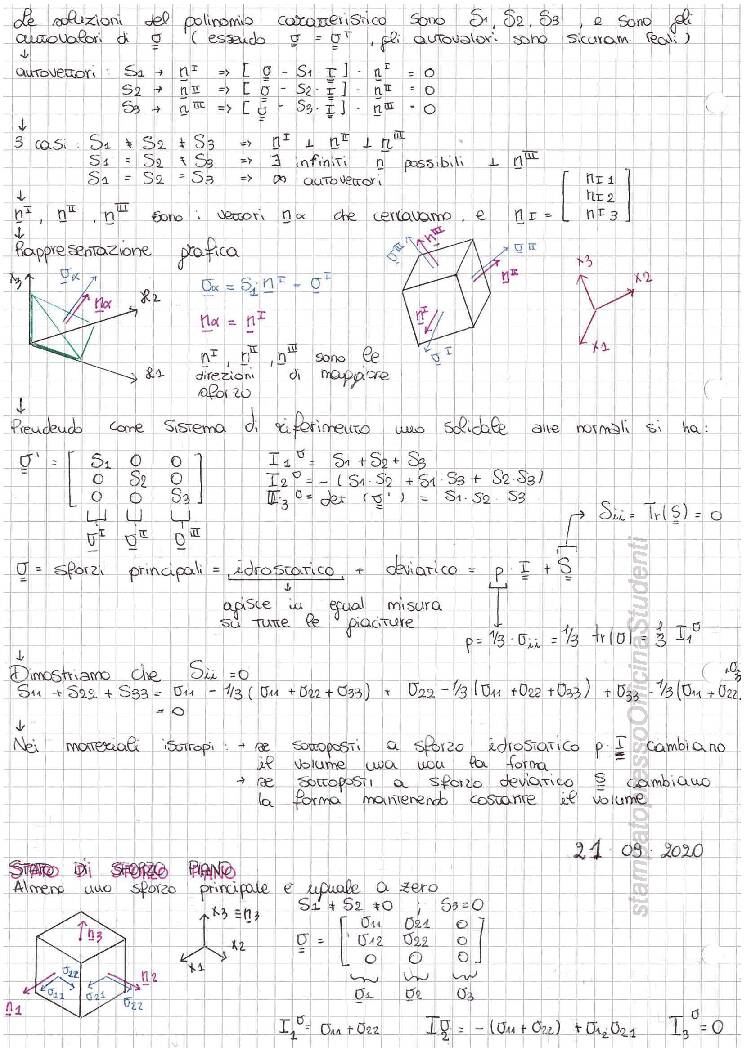 Le soluzioni del polinomio caratteristico sono S1, S2, S3, e sono gli
autovalori di σ (essendo σ = σᵀ, gli autovalori sono sicuram reali)
↓
autovettori: S1 → n^I => [σ - S1 I] · n^I = 0
S2 → n^II => [σ - S2 · I] · n^II = 0
S3 → n^III => [σ - S3 · I] · n^III = 0
↓
3 casi: S1 ≠ S2 ≠ S3 => n^I ⊥ n^II ⊥ n^III
S1 = S2 ≠ S3 => ∃ infiniti n possibili ⊥ n^III
S1 = S2 = S3 => ∞ autovettori
↓
n^I, n^II, n^III sono i vettori nα che cercavamo, e nI = [nI1 nI2 nI3]
↓
Rappresentazione grafica
x3 σα nα x2 x1
σα = S1 n^I = σ^I
nα = n^I
n^I, n^II, n^III sono le
direzioni di maggiore
sforzo
σ^III n^III σ^II n^II n^I σ^I
x3 x2 x1
↓
Prendendo come sistema di riferimento uno solidale alle normali si ha:
σ' = [S1 0 0
0 S2 0
0 0 S3]
σ^I σ^II σ^III
I1^σ = S1 + S2 + S3
I2^σ = -(S1·S2 + S1·S3 + S2·S3)
I3^σ = det (σ') = S1·S2·S3
→ Sii = Tr(S) = 0
σ = sforzi principali = idrostatico + deviatico = p · I + S
↓
agisce in egual misura
su tutte le giaciture
p = 1/3 · σii = 1/3 tr(σ) = 1/3 I1^σ
↓
Dimostriamo che Sii = 0
S11 + S22 + S33 = σ11 - 1/3(σ11 + σ22 + σ33) + σ22 - 1/3(σ11 + σ22 + σ33) + σ33 - 1/3(σ11 + σ22
= 0
↓
Nei materiali isotropi: → se sottoposti a sforzo idrostatico p · I cambiano
il volume ma non la forma
→ se sottoposti a sforzo deviatico S cambiano
la forma mantenendo costante il volume
21 09 2020
STATO DI SFORZO PIANO
Almeno uno sforzo principale è uguale a zero
S1 ≠ S2 ≠ 0 ; S3 = 0
n3 σ12 σ11 σ21 σ22 n2 n1
x3 ≡ n3 x2 x1
σ = [σ11 σ21 0
σ12 σ22 0
0 0 0]
σ1 σ2 σ3
I1^σ = σ11 + σ22 I2^σ = -(σ11 + σ22) + σ12σ21 I3^σ = 0
stampatopressoOfficinaStudenti